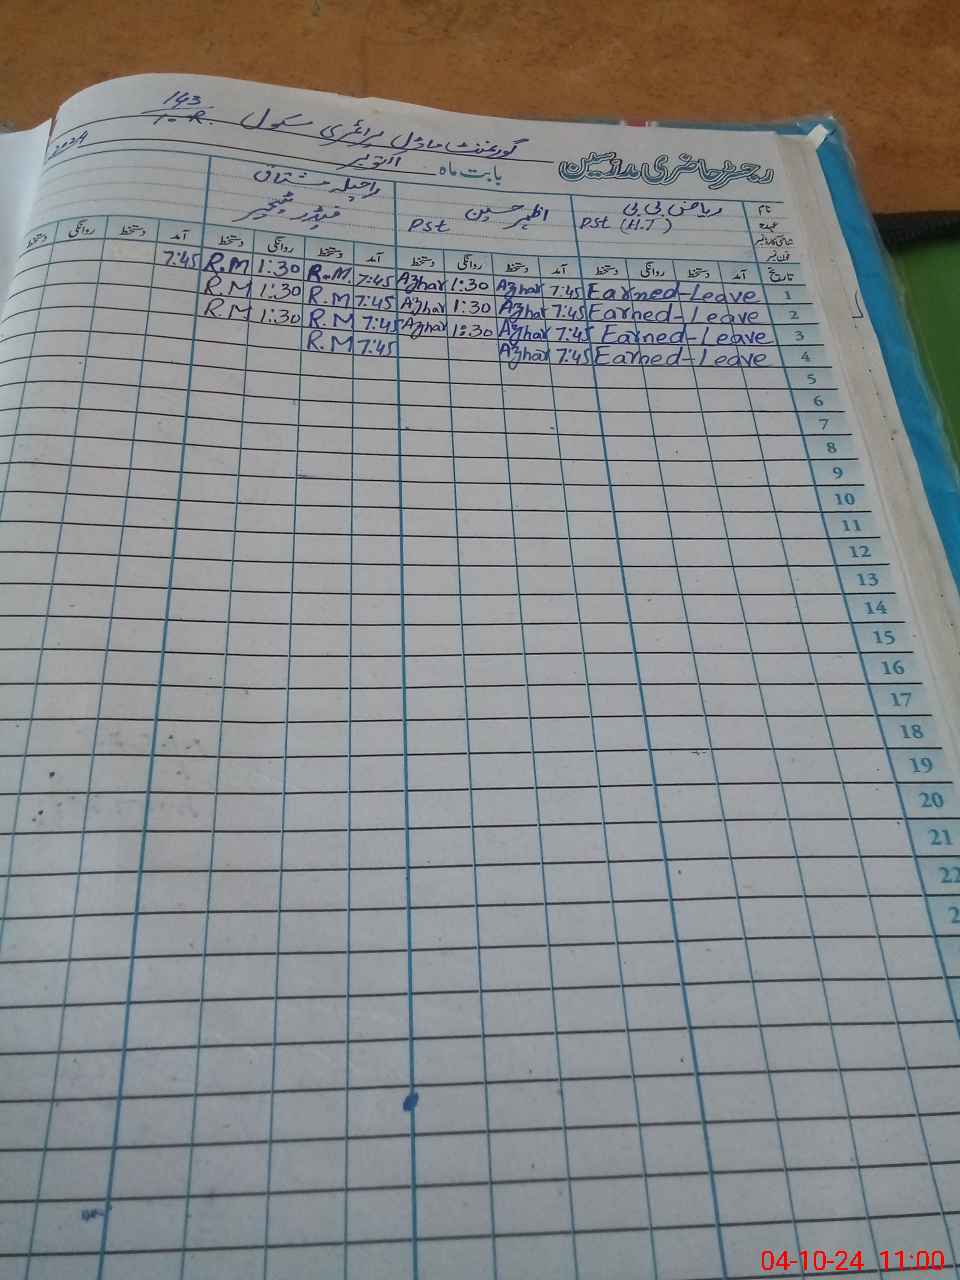 143
10-R.
گورنمنٹ ماڈل پرائمری سکول
رجسٹر حاضری مدرسین
بابت ماہ اکتوبر 2024
نام ریاض بی بی اظہر حسین راحیلہ مشتاق
عہدہ PST (H.T) PST فیڈر ٹیچر
شناختی کارڈ نمبر
فون نمبر
تاریخ آمد دستخط روانگی دستخط آمد دستخط روانگی دستخط آمد دستخط روانگی دستخط آمد دستخط روانگی دستخط
7:45 R.M 1:30 R.M. 7:45 Azhar 1:30 Azhar 7:45 Earned-Leave 1
R.M 1:30 R.M 7:45 Azhar 1:30 Azhar 7:45 Earned-Leave 2
R.M 1:30 R.M 7:45 Azhar 1:30 Azhar 7:45 Earned-Leave 3
R.M 7:45 Azhar 7:45 Earned-Leave 4
5
6
7
8
9
10
11
12
13
14
15
16
17
18
19
20
21
22
04-10-24 11:00